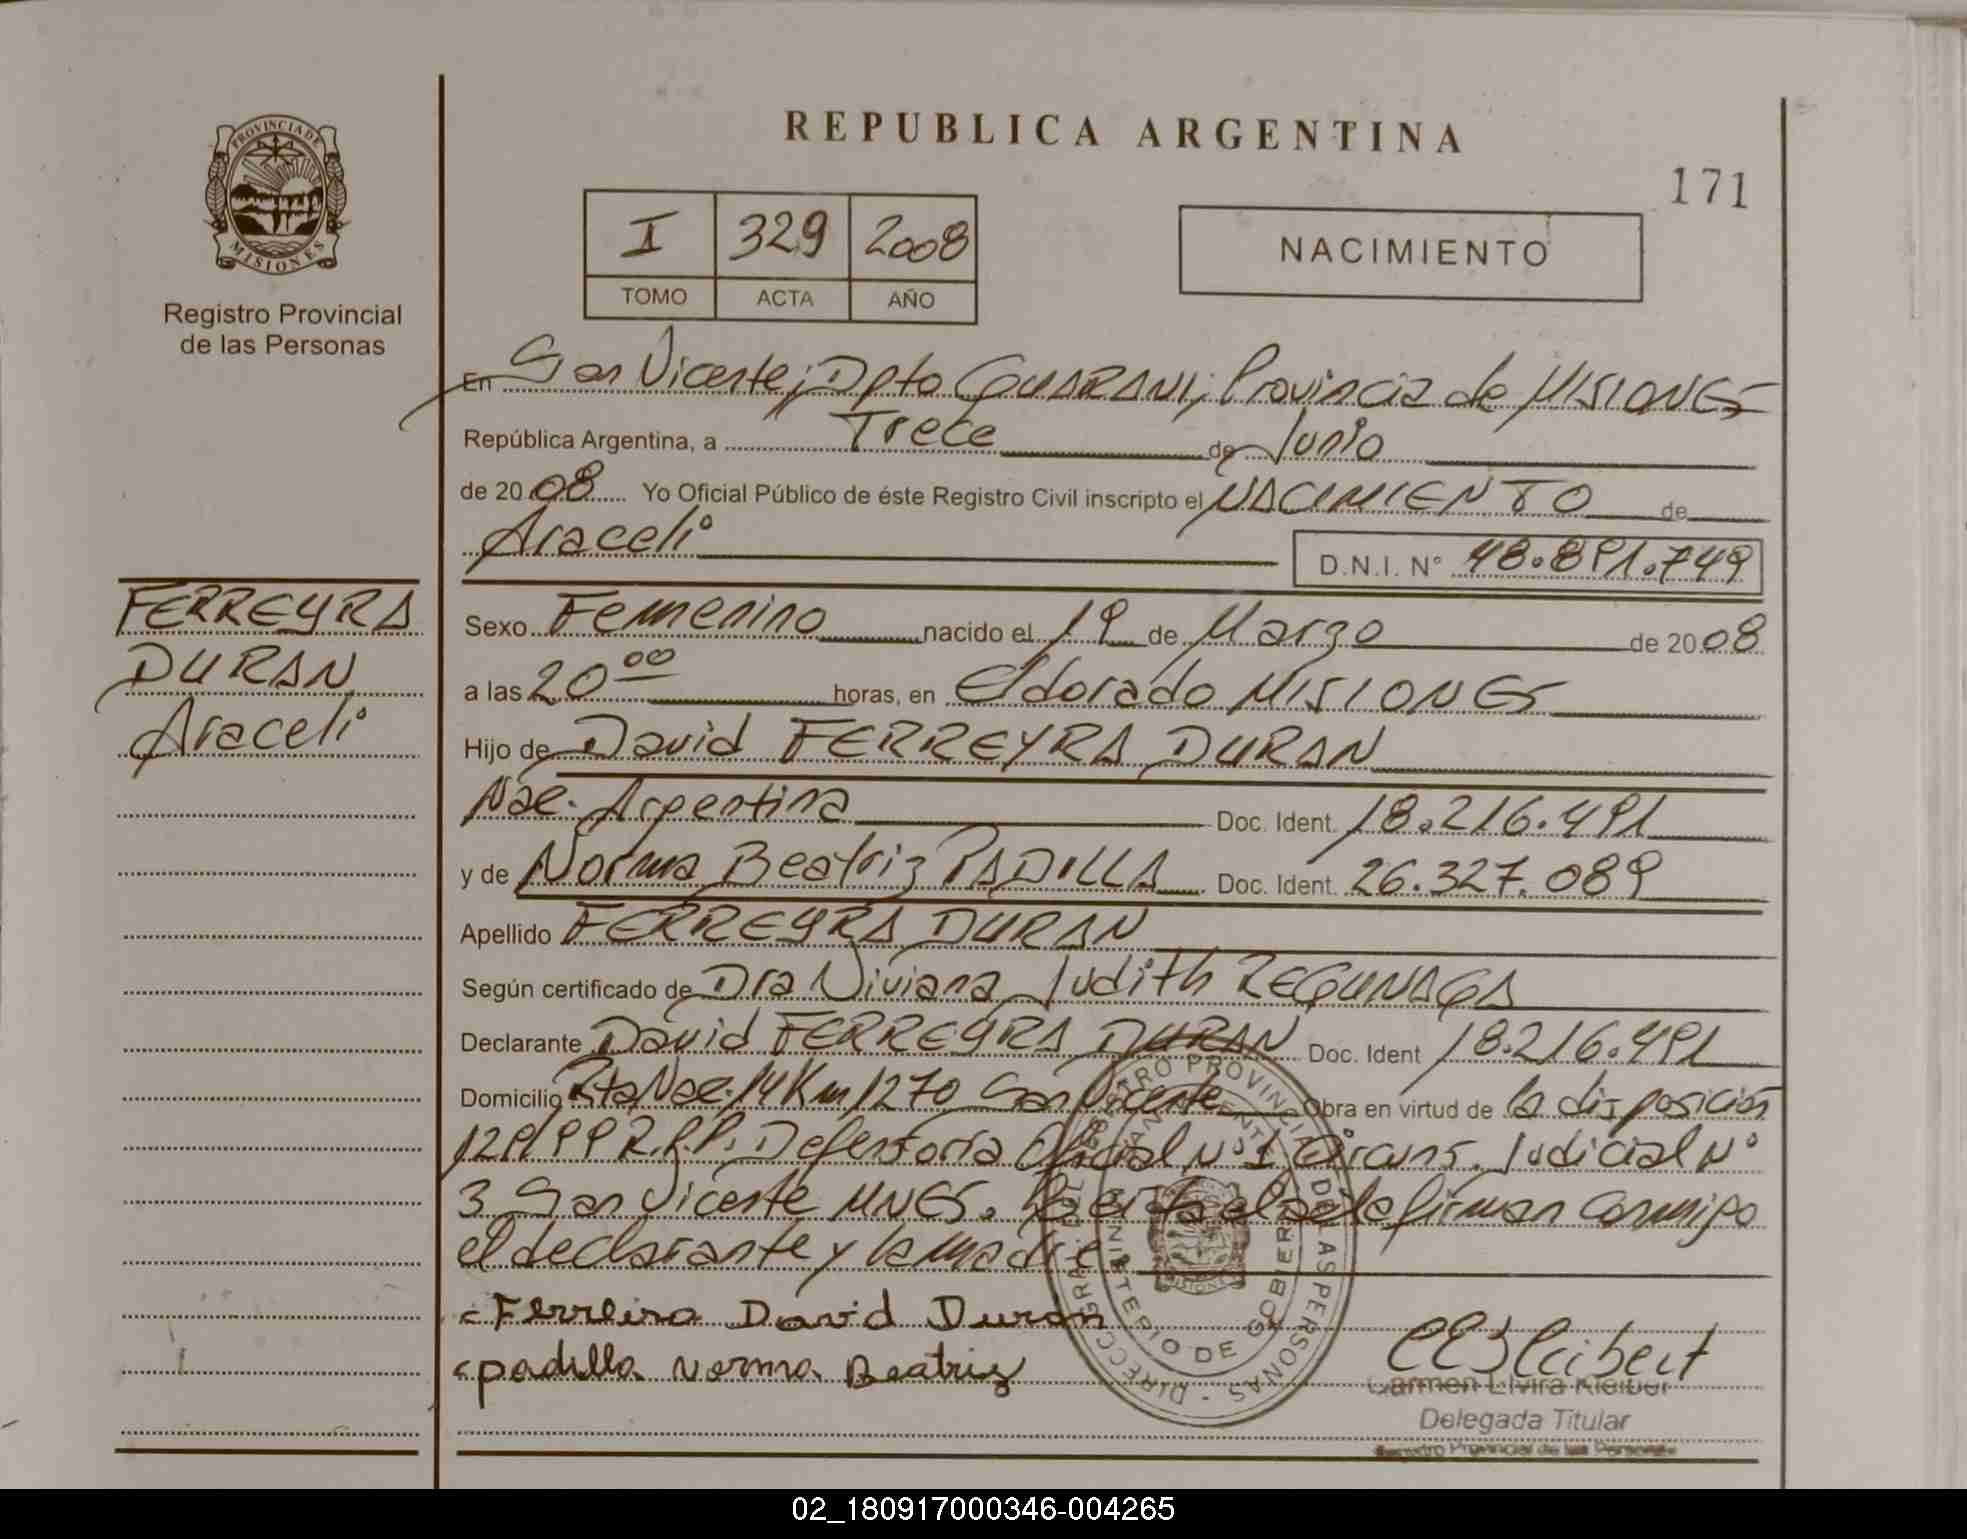 REPUBLICA ARGENTINA
171
PROVINCIA DE
MISIONES
Registro Provincial
de las Personas
I 329 2008
TOMO ACTA AÑO
NACIMIENTO
En San Vicente, Dpto GUARANI, Provincia de MISIONES
República Argentina, a Trece de Junio
de 2008 Yo Oficial Público de éste Registro Civil inscripto el NACIMIENTO de
Araceli D.N.I. N° 48.891.749
FERREYRA
DURAN
Araceli
Sexo Femenino nacido el 19 de Marzo de 2008
a las 20 00 horas, en Eldorado MISIONES
Hijo de David FERREYRA DURAN
Nac. Argentina Doc. Ident. 18.216.491
y de Norma Beatriz PADILLA Doc. Ident. 26.327.089
Apellido FERREYRA DURAN
Según certificado de Dra Viviana Judith REGUNAGA
Declarante David FERREYRA DURAN Doc. Ident 18.216.491
Domicilio Rta Nac. 14 Km 1270 San Vicente Obra en virtud de la disposición
129/99 R.P.P. Defensoria Oficial N° 1 Circuns. Judicial N°
3 San Vicente MNES. el acta firman conmigo
el declarante y la madre.
Ferreira David Duran
padilla Norma Beatriz
DIRECC. GRAL. DEL REGISTRO PROVINCIAL DE LAS PERSONAS
MINISTERIO DE GOBIERNO
MISIONES
Carmen Elvira Kleibert
Delegada Titular
Registro Provincial de las Personas
02_180917000346-004265